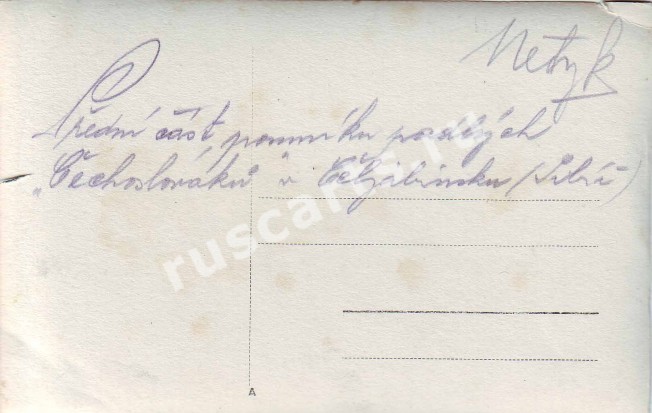 Netyk
Přední část pomníku padlých
„Čechoslováků“ v Čeljabinsku (Sibiř)
ruscards.ru
A